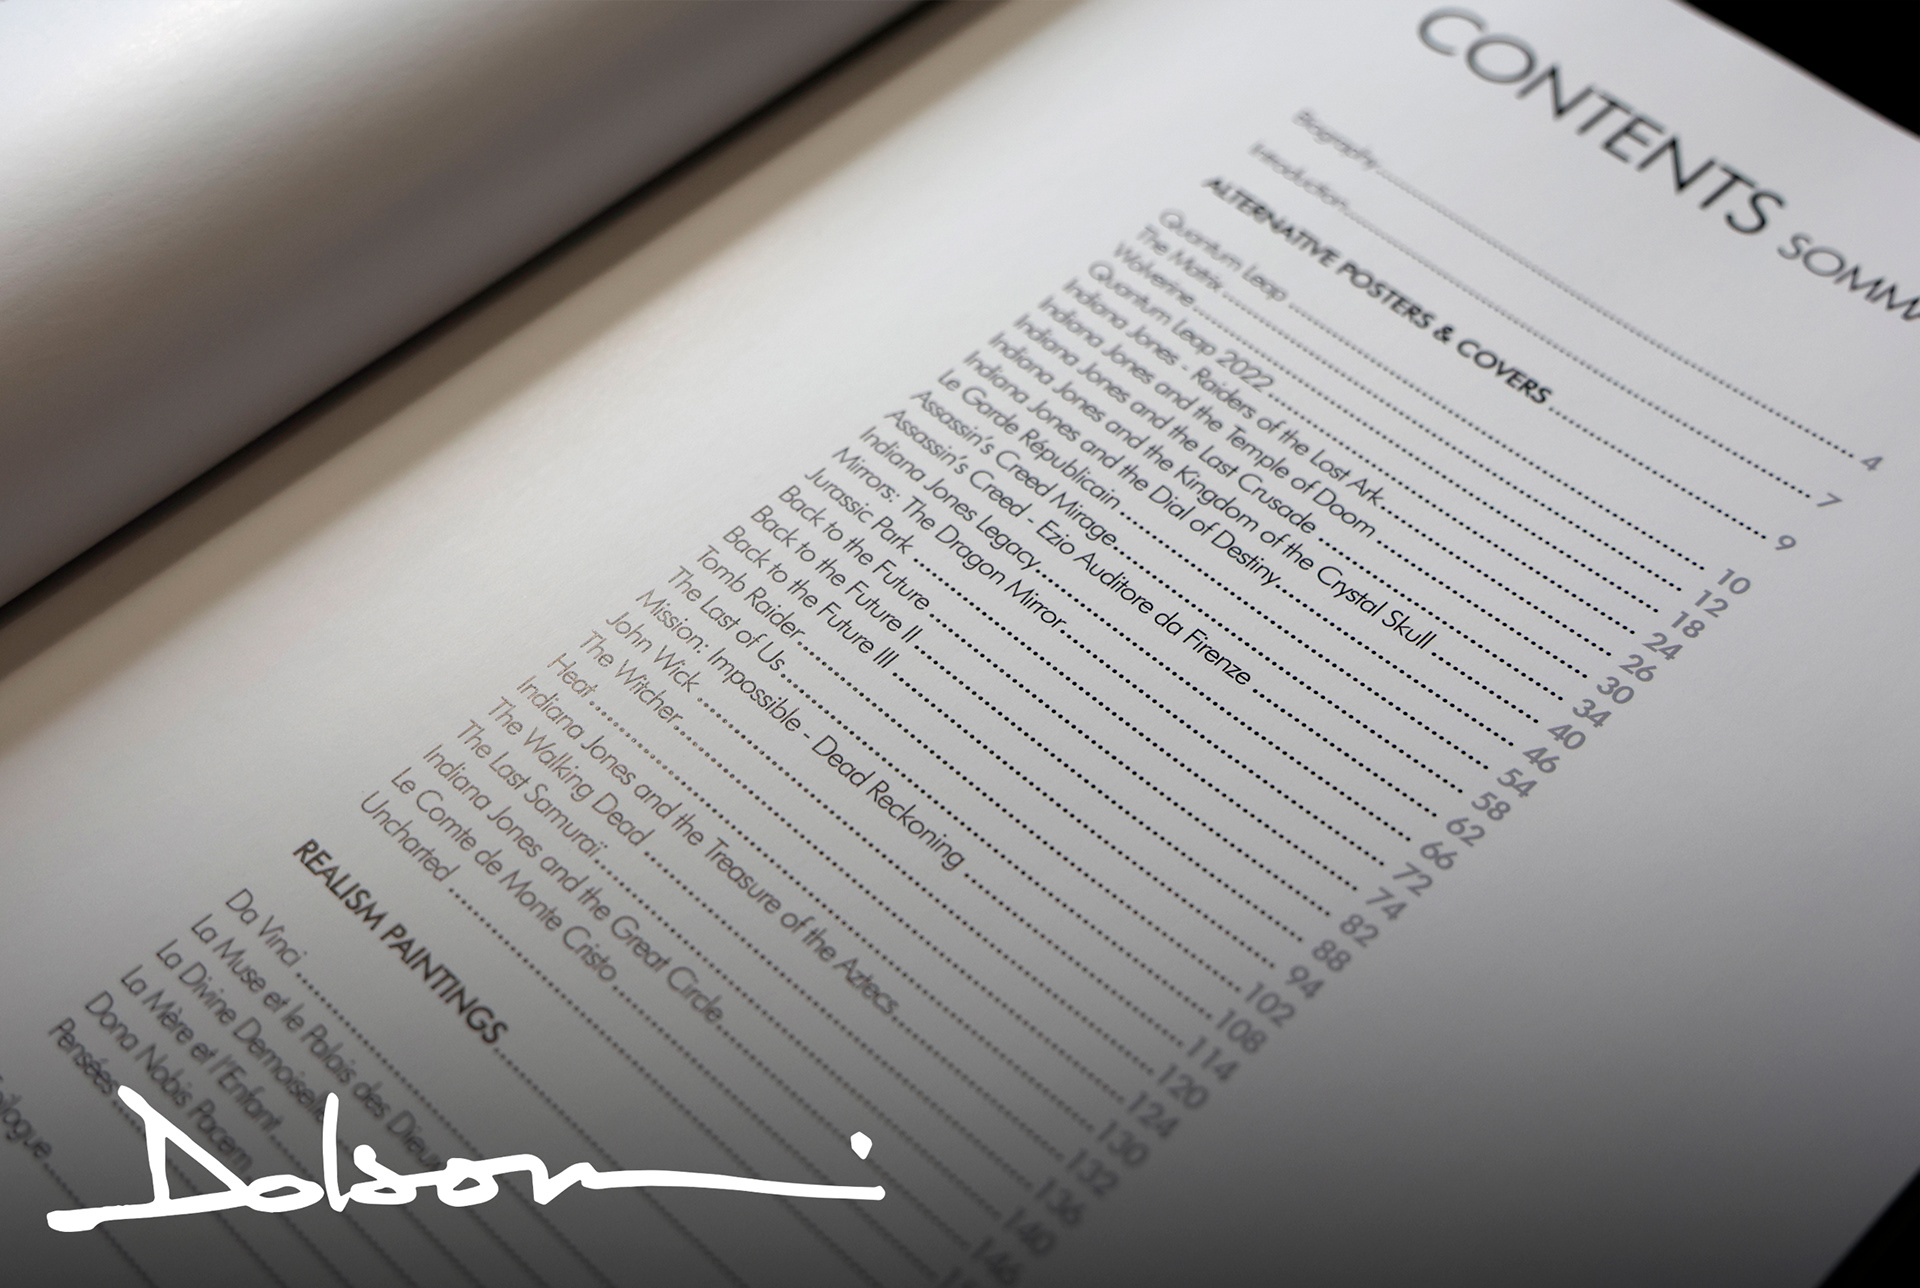 CONTENTS SOMMA
Biography 4
Introduction 7
ALTERNATIVE POSTERS & COVERS 9
Quantum Leap 10
The Matrix 12
Wolverine 18
Quantum Leap 2022 24
Indiana Jones - Raiders of the Lost Ark 26
Indiana Jones and the Temple of Doom 30
Indiana Jones and the Last Crusade 34
Indiana Jones and the Kingdom of the Crystal Skull 40
Indiana Jones and the Dial of Destiny 46
Le Garde Républicain 54
Assassin's Creed Mirage 58
Assassin's Creed - Ezio Auditore da Firenze 62
Indiana Jones Legacy 66
Mirrors: The Dragon Mirror 72
Jurassic Park 74
Back to the Future 82
Back to the Future II 88
Back to the Future III 94
Tomb Raider 102
The Last of Us 108
Mission: Impossible - Dead Reckoning 114
John Wick 120
The Witcher 124
Heat 130
Indiana Jones and the Treasure of the Aztecs 132
The Walking Dead 136
The Last Samuraï 140
Indiana Jones and the Great Circle 146
Le Comte de Monte Cristo
Uncharted
REALISM PAINTINGS
Da Vinci
La Muse et le Palais des Dieux
La Divine Demoiselle
La Mère et l'Enfant
Dona Nobis Pacem
Pensées